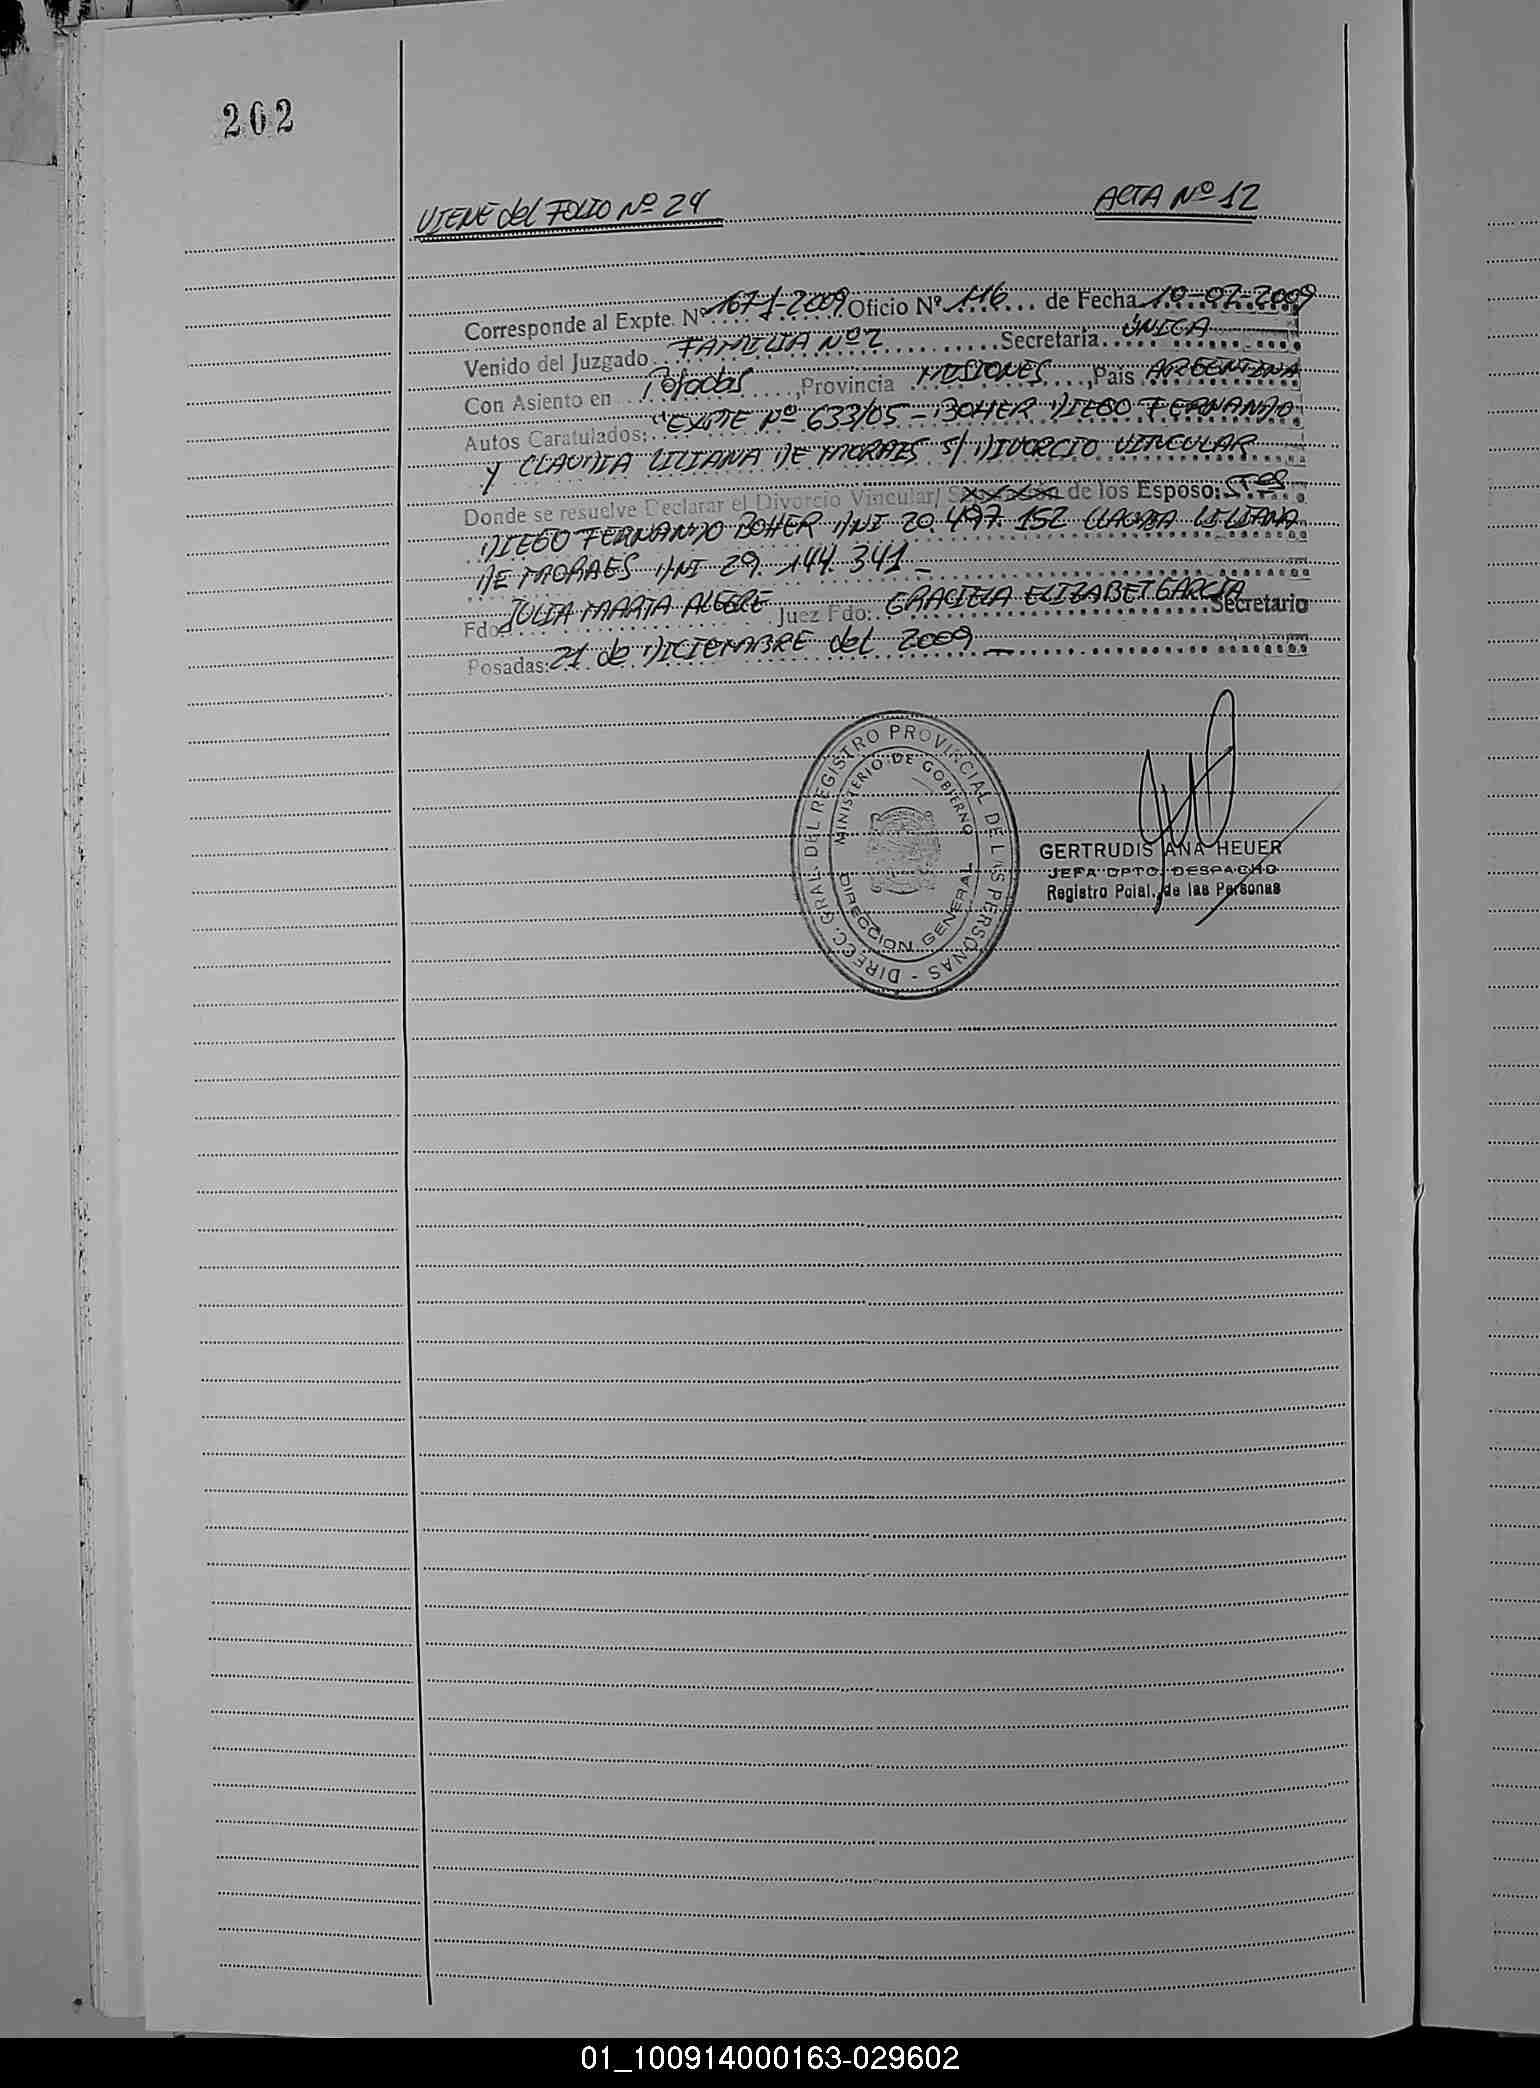 202
VIENE del FOLIO Nº 24 ACTA Nº 12
Corresponde al Expte. Nº 167-J-2009 Oficio Nº 116 de Fecha 10-02-2009
Venido del Juzgado FAMILIA Nº 2 Secretaria ÚNICA
Con Asiento en Posadas, Provincia MISIONES, País ARGENTINA
Autos Caratulados: "EXPTE Nº 633/05 - BOHER DIEGO FERNANDO
Y CLAUDIA LILIANA DE MORAES S/ DIVORCIO VINCULAR
Donde se resuelve Declarar el Divorcio Vincular/ de los Esposo:
DIEGO FERNANDO BOHER DNI 20.497.152 CLAUDIA LILIANA
DE MORAES DNI 29.144.341 -
Fdo: JULIA MARTA ALEGRE Juez Fdo: GRACIELA ELIZABET GARCIA Secretario
Posadas: 21 de DICIEMBRE del 2009 -
DIRECC. GRAL. DEL REGISTRO PROVINCIAL DE LAS PERSONAS -
MINISTERIO DE GOBIERNO
DIRECCION GENERAL
GERTRUDIS ANA HEUER
JEFA DPTO. DESPACHO
Registro Pcial. de las Personas
01_100914000163-029602